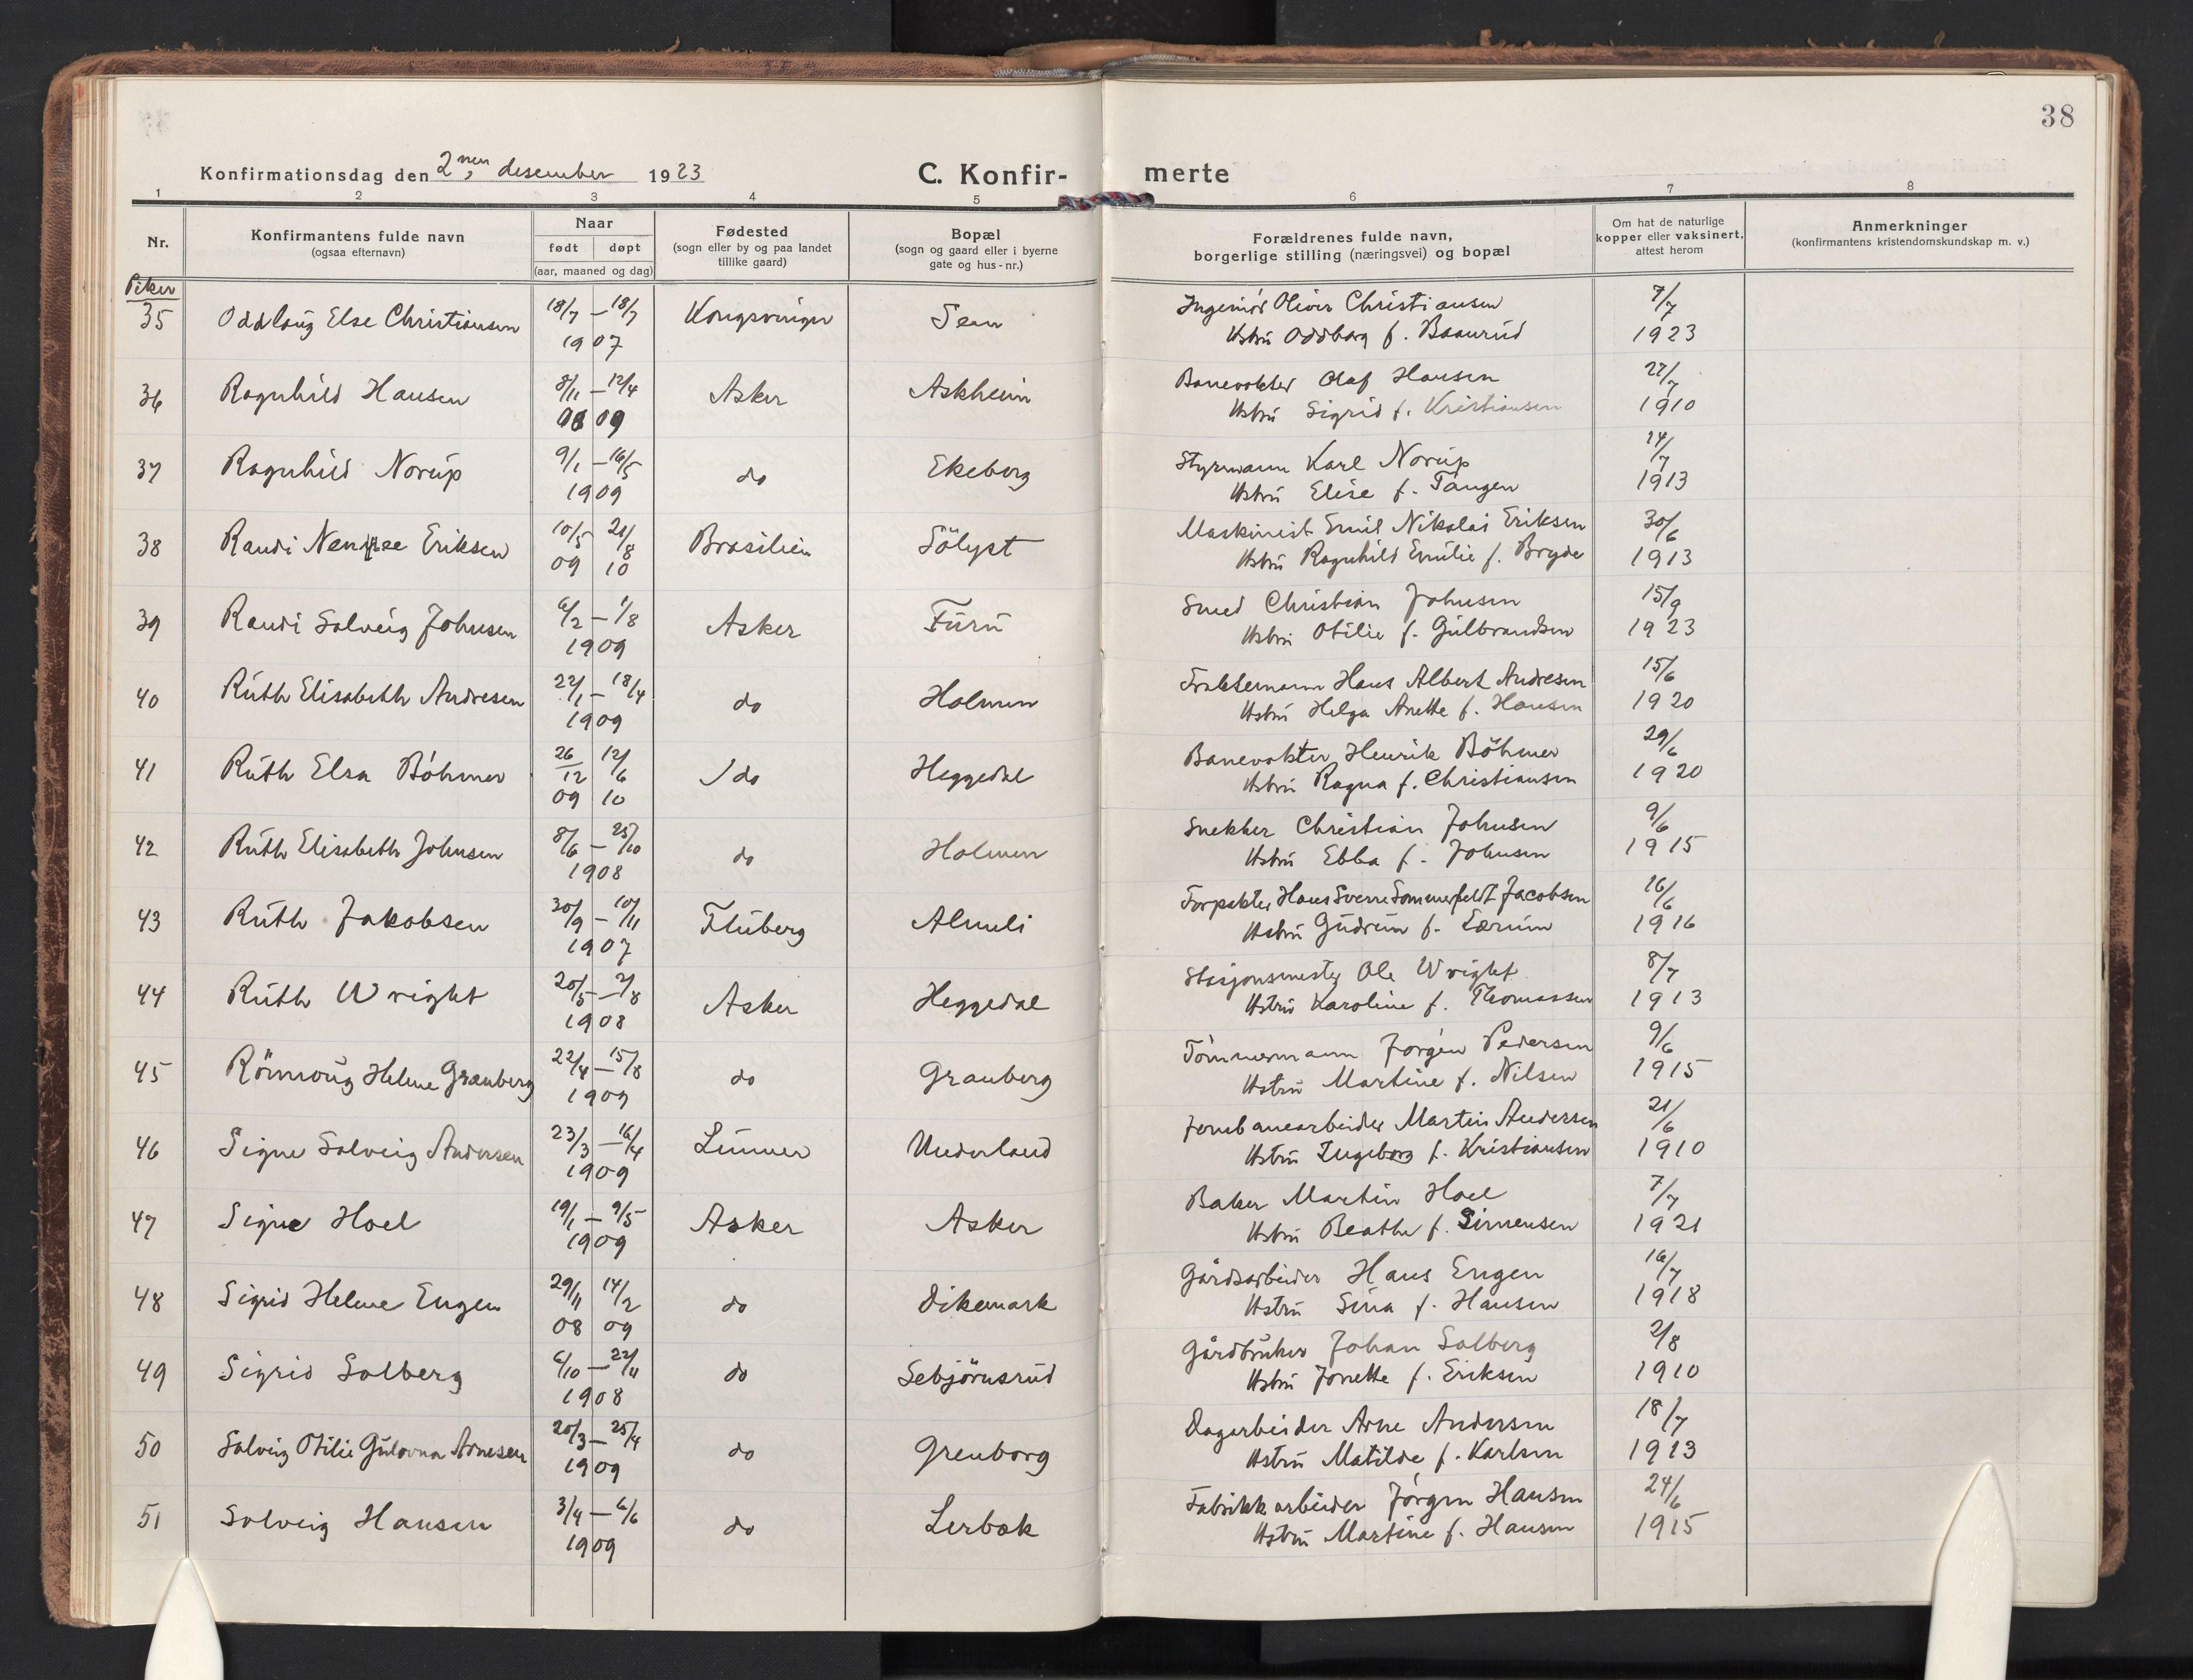 38
Konfirmationsdag den 2nen desember 1923
C. Konfir- merte
1 2 3 4 5 6 7 8
Nr.
Konfirmantens fulde navn
(ogsaa efternavn)
Naar
født døpt
(aar, maaned og dag)
Fødested
(sogn eller by og paa landet
tillike gaard)
Bopæl
(sogn og gaard eller i byerne
gate og hus-nr.)
Forældrenes fulde navn,
borgerlige stilling (næringsvei) og bopæl
Om hat de naturlige
kopper eller vaksinert,
attest herom
Anmerkninger
(konfirmantens kristendomskundskap m. v.)
Piker
35 Oddlaug Else Christiansen 18/7 – 18/7 Kongsvinger Sem Ingeniør Oliver Christiansen 7/7
1907 Hstru Oddborg f. 1923
36 Ragnhild Hansen 8/11 – 12/4 Asker Askheim Banevokter Olaf Hansen 27/7
08 09 Hstru Sigrid f. Kristiansen 1910
37 Ragnhild Norup 9/1 – 16/5 do Ekeberg Styrmann Karl Norup 14/7
1909 Hstru Elise f. Tangen 1913
38 Randi Eriksen 10/5 21/8 Brasilien Sölyst Maskinist Emil Nikolai Eriksen 30/6
09 10 Hstru Ragnhild Emilie f. Bryde 1913
39 Randi Solveig Johnsen 6/2 – 1/8 Asker Furu Smed Christian Johnsen 15/9
1909 Hstru Otilie f. Gulbrandsen 1923
40 Ruth Elisabeth Andresen 22/1 – 18/4 do Holmen Fraktemann Hans Albert Andresen 15/6
1909 Hstru Helga Anette f. Hansen 1920
41 Ruth Elsa Böhmer 26/12 12/6 do Heggedal Banevokter Henrik Böhmer 29/6
09 10 Hstru Ragna f. Christiansen 1920
42 Ruth Elisabeth Johnsen 8/6 – 25/10 do Holmen Snekker Christian Johnsen 9/6
1908 Hstru Ebba f. Johnsen 1915
43 Ruth Jakobsen 30/9 – 10/11 Fluberg Almeli Forpakter Hans Sverre Sommerfeldt Jacobsen 16/6
1907 Hstru Gudrun f. Lærum 1916
44 Ruth Wright 20/5 – 2/8 Asker Heggedal Stasjonsmester Ole Wright 8/7
1908 Hstru Karoline f. Thomassen 1913
45 Römoug Helene Granberg 22/4 – 15/8 do Granberg Tömmermann Jörgen Pedersen 9/6
1909 Hstru Martine f. Nilsen 1915
46 Signe Solveig Andersen 23/3 – 16/4 Lunner Underland Jernbanearbeider Martin Andersen 21/6
1909 Hstru Ingeborg f. Kristiansen 1910
47 Signe Hoel 19/1 – 9/5 Asker Asker Baker Martin Hoel 7/7
1909 Hstru Beathe f. Simensen 1921
48 Sigrid Helene Engen 29/11 14/2 do Dikemark Gårdsarbeider Hans Engen 16/7
08 09 Hstru Sina f. Hansen 1918
49 Sigrid Solberg 6/10 – 22/11 do Sebjörnsrud Gårdbruker Johan Solberg 2/8
1908 Hstru Jonette f. Eriksen 1910
50 Solveig Otilie Gulovna Arnesen 20/3 – 25/4 do Grenborg Dagarbeider Arne Andersen 18/7
1909 Hstru Matilde f. Karlsen 1913
51 Solveig Hansen 3/4 – 6/6 do Lerbak Fabrikkarbeider Jörgen Hansen 24/6
1909 Hstru Martine f. Hansen 1915